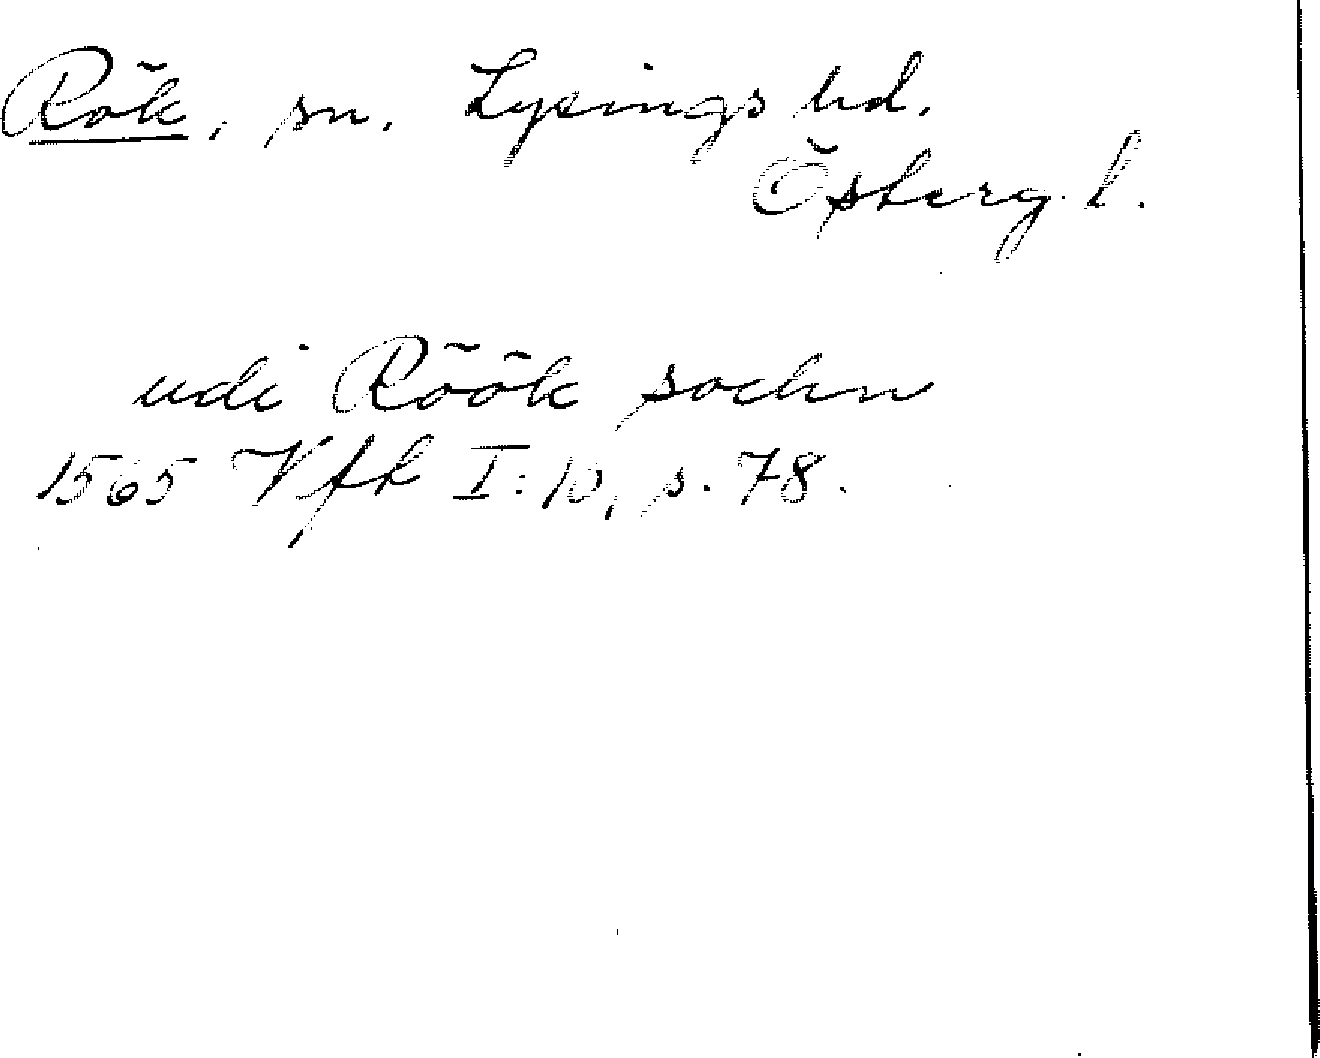 Rök, sn. Lysings hd.
Österg. l.
udi Röök sochn
1565 Vfk I:10, s. 78.